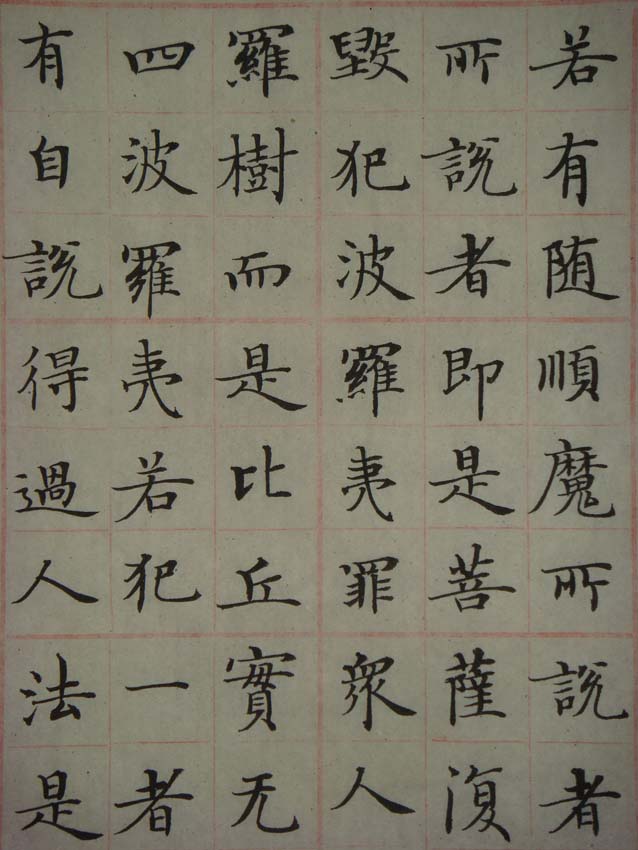 若有随順魔所説者
所説者即是菩薩復
毀犯波羅夷罪衆人
羅樹而是比丘實无
四波羅夷若犯一者
有自説得過人法是